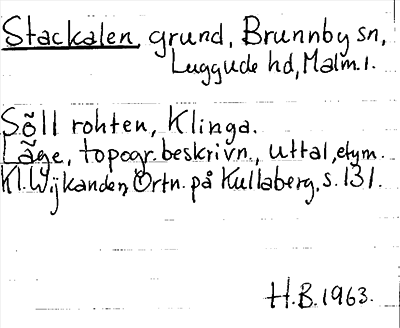 Stackalen, grund, Brunnby sn,
Luggude hd, Malm. l.
Sõll rohten, Klinga.
Läge, topogr. beskrivn., uttal, etym.
Kl. Wijkander, Ortn. på Kullaberg, s. 131.
H.B. 1963.